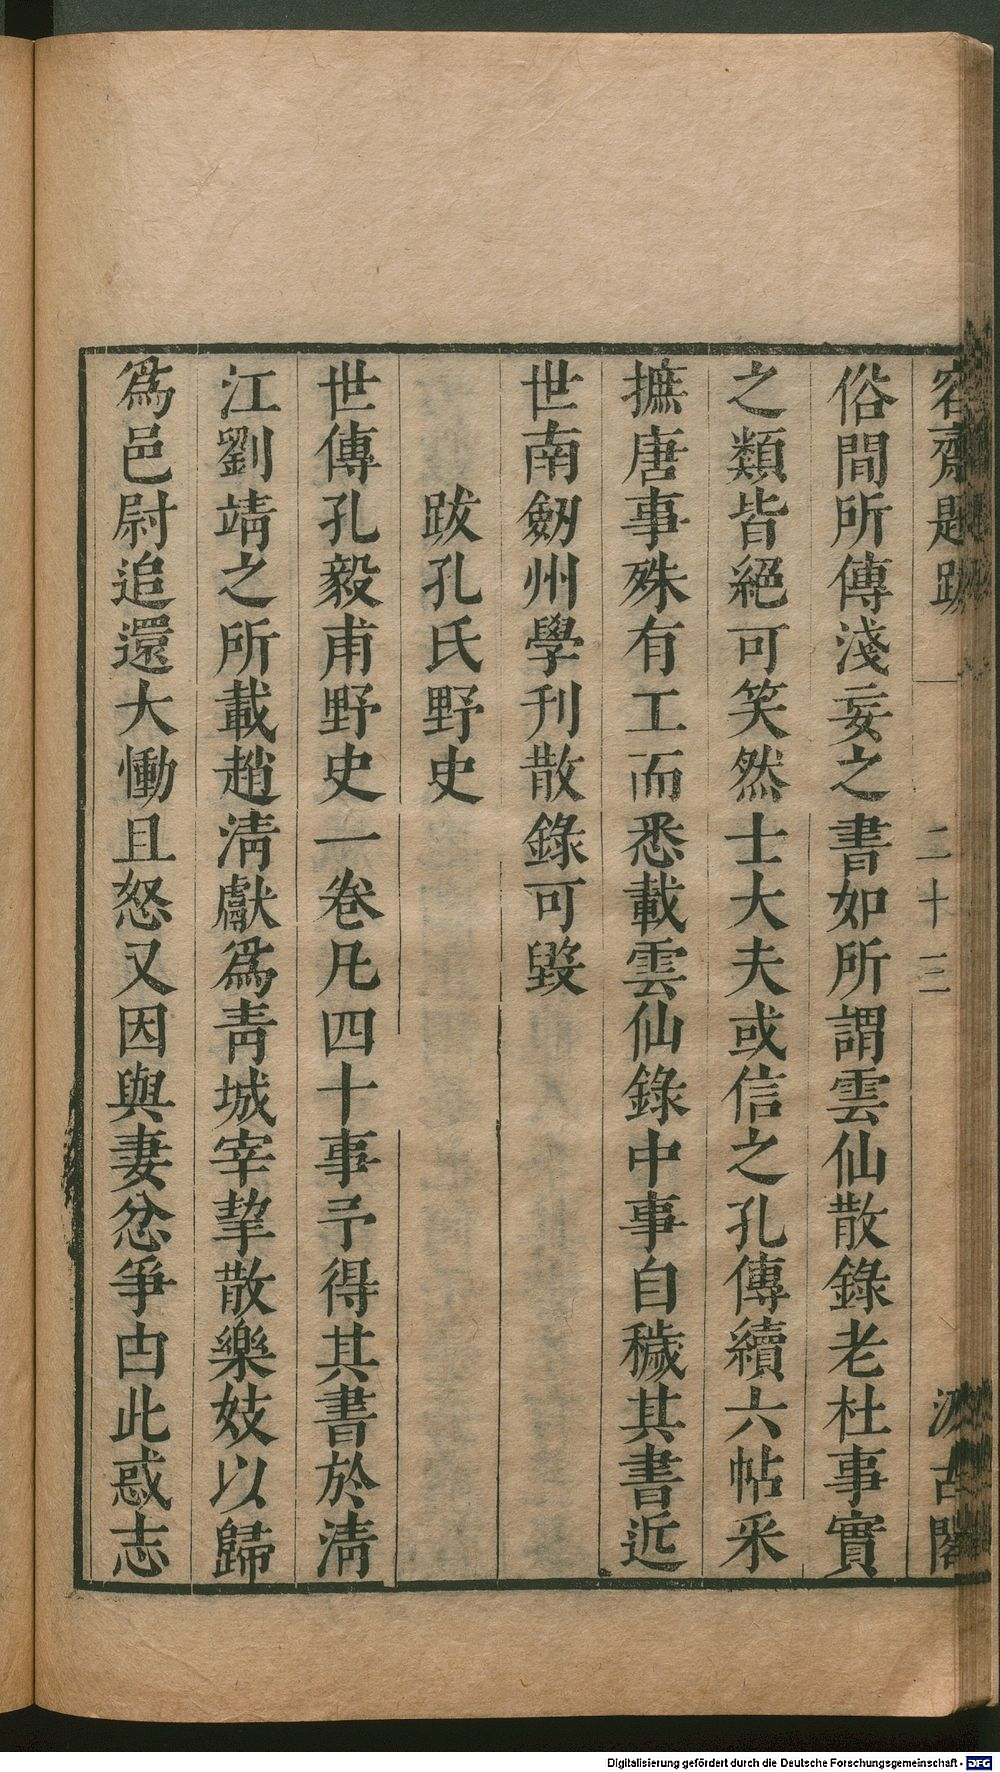 容齋題跋 二十三 汲古閣
俗間所傳淺妄之書如所謂雲仙散錄老杜事實
之類皆絕可笑然士大夫或信之孔傳續六帖采
摭唐事殊有工而悉載雲仙錄中事自穢其書近
世南劒州學刊散錄可毀
跋孔氏野史
世傳孔毅甫野史一卷凡四十事予得其書於淸
江劉靖之所載趙淸獻爲靑城宰挈散樂妓以歸
爲邑尉追還大慟且怒又因與妻忿爭由此惑志
Digitalisierung gefördert durch die Deutsche Forschungsgemeinschaft - DFG